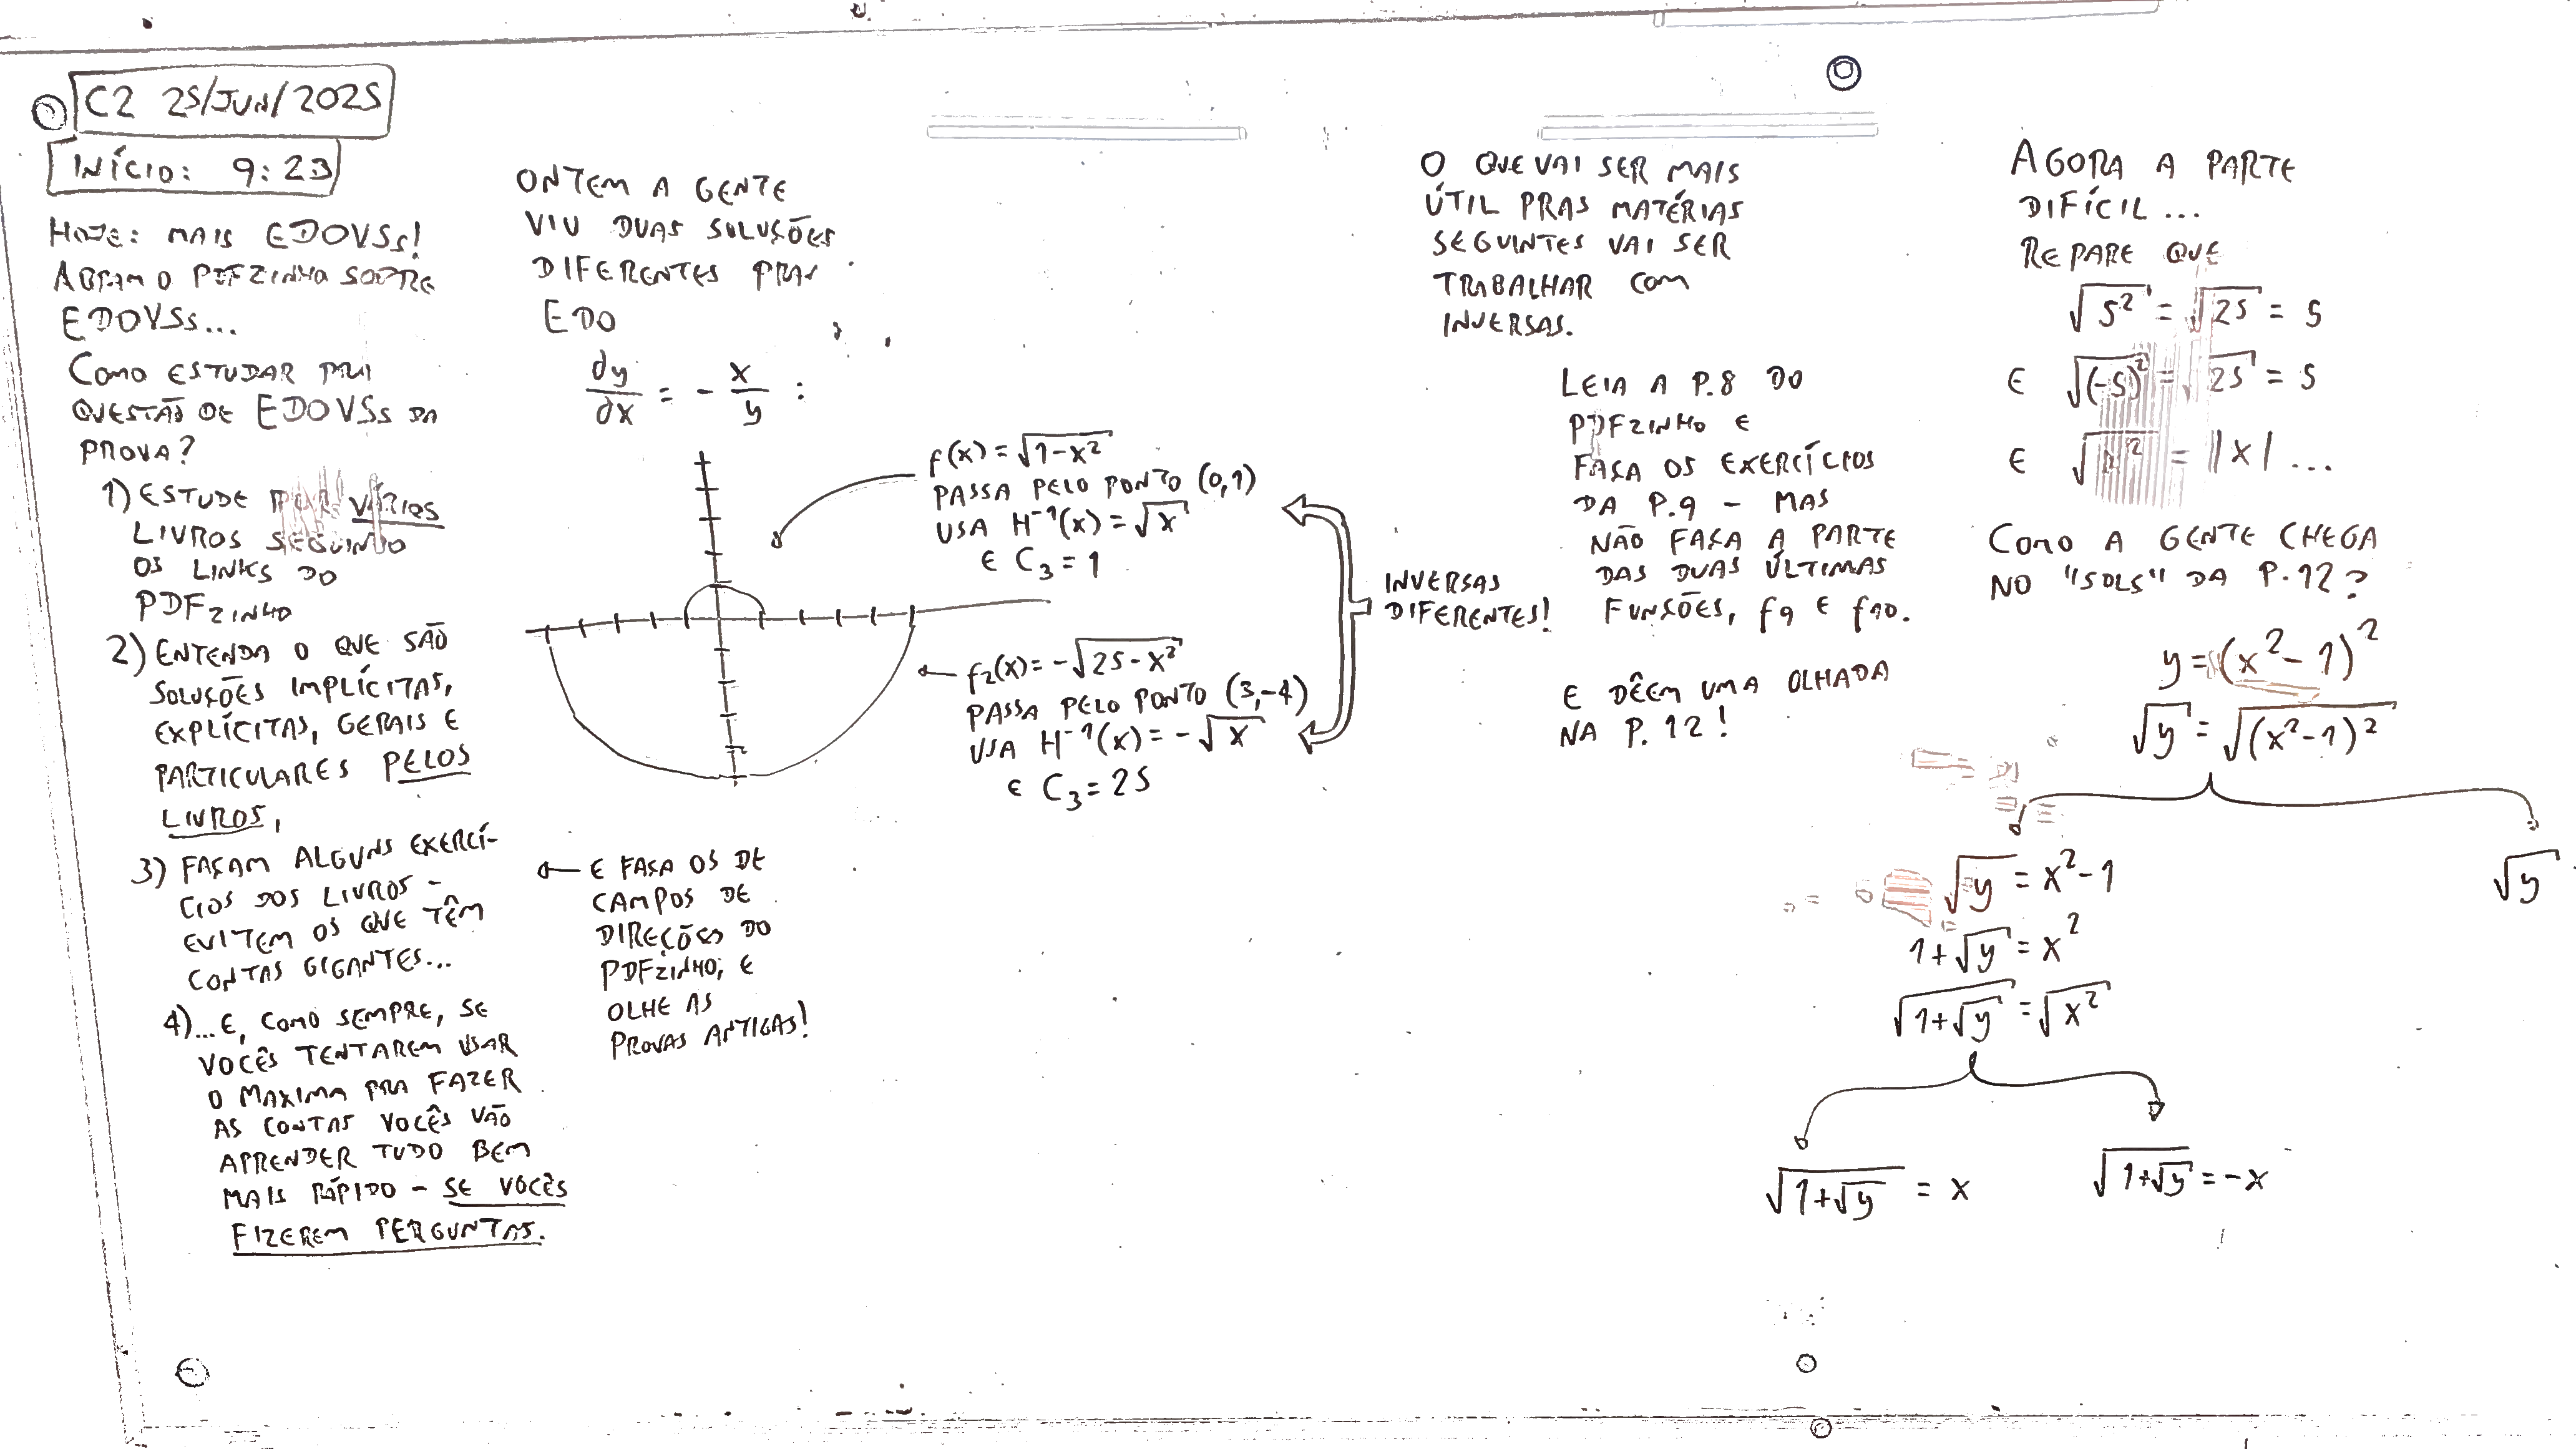 C2 25/JUN/2025
INÍCIO: 9:23
HOJE: MAIS EDOVSs!
ABRAM O PDFZINHO SOBRE
EDOVSs...
COMO ESTUDAR PRA
QUESTÃO DE EDOVSs DA
PROVA?
1) ESTUDE POR VÁRIOS
LIVROS SEGUINDO
OS LINKS DO
PDFZINHO
2) ENTENDA O QUE SÃO
SOLUÇÕES IMPLÍCITAS,
EXPLÍCITAS, GERAIS E
PARTICULARES PELOS
LIVROS,
3) FAÇAM ALGUNS EXERCÍ-
CIOS DOS LIVROS -
EVITEM OS QUE TÊM
CONTAS GIGANTES...
4) ...E, COMO SEMPRE, SE
VOCÊS TENTAREM USAR
O MAXIMA PRA FAZER
AS CONTAS VOCÊS VÃO
APRENDER TUDO BEM
MAIS RÁPIDO - SE VOCÊS
FIZEREM PERGUNTAS.
ONTEM A GENTE
VIU DUAS SOLUÇÕES
DIFERENTES PRA
EDO
dy/dx = - x/y :
f(x) = √(1-x²)
PASSA PELO PONTO (0,1)
USA H⁻¹(x) = √x
E C₃ = 1
f₂(x) = -√(25-x²)
PASSA PELO PONTO (3,-4)
USA H⁻¹(x) = -√x
E C₃ = 25
INVERSAS
DIFERENTES!
← E FAÇA OS DE
CAMPOS DE
DIREÇÕES DO
PDFZINHO, E
OLHE AS
PROVAS ANTIGAS!
O QUE VAI SER MAIS
ÚTIL PRAS MATÉRIAS
SEGUINTES VAI SER
TRABALHAR COM
INVERSAS.
LEIA A P.8 DO
PDFZINHO E
FAÇA OS EXERCÍCIOS
DA P.9 - MAS
NÃO FAÇA A PARTE
DAS DUAS ÚLTIMAS
FUNÇÕES, f9 E f10.
E DÊEM UMA OLHADA
NA P.12!
AGORA A PARTE
DIFÍCIL...
REPARE QUE
√5² = √25 = 5
E √(-5)² = √25 = 5
E √x² = |x| ...
COMO A GENTE CHEGA
NO "SOLS" DA P.12?
y = (x²-1)²
√y = √(x²-1)²
√y = x²-1
√y
1+√y = x²
√(1+√y) = √x²
√(1+√y) = x
√(1+√y) = -x